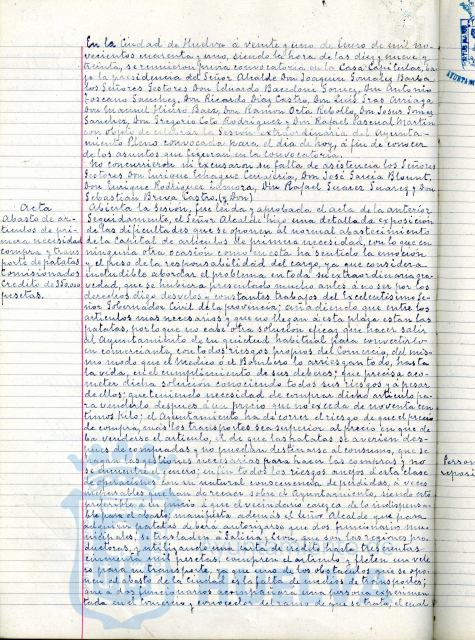 En la Ciudad de Huelva á veinte y uno de Enero de mil no-
vecientos cuarenta y uno, siendo la hora de las diez y nueve y
treinta, se reunieron previa convocatoria en la Casa Capitular, ba-
jo la presidencia del Señor Alcalde Don Joaquin Gonzalez Barba
los Señores Gestores Don Eduardo Don Antonio
Toscano Sanchez, Don Ricardo Diaz Castro, Don Luis
Don Manuel Baez, Don Ramon Orta Rebollo, Don Jesus Gomez
Sanchez, Don Gregorio Rodriguez y Don Rafael Pascual Martin
con objeto de celebrar la Sesion extraordinaria del Ayunta-
miento Pleno convocada para el dia de hoy, á fin de conocer
de los asuntos que figuran en la convocatoria.
No concurrieron ni excusaron su falta de asistencia los Señores
Gestores Don Enrique Don José Garcia
Don Enrique Rodriguez Don Rafael Suarez Suarez y Don
Sebastian Castro,
Acta
Abierta la Sesion, fue leida y aprobada el acta de la anterior.
Abasto de ar-
tículos de pri-
mera necesidad
compra y trans
porte de patatas
Comisionados
Credito de
pesetas.
Seguidamente, el Señor Alcalde hizo una detallada exposicion
de las dificultades que se oponen al normal abastecimiento
de la Capital de articulos de primera necesidad, con lo que en
ninguna otra ocasion como en esta ha sentido la emocion
y el peso de la responsabilidad del cargo, ya que considera
ineludible abordar el problema en toda su extraordinaria gra-
vedad, que se hubiera presentado mucho antes á no ser por los
desvelos y constantes trabajos del Excelentisimo Se-
ñor Gobernador Civil de la provincia; añadiendo que entre los
articulos mas necesarios y que no llegan á esta plaza estan las
patatas, por lo que no cabe otra solucion eficaz que hacer salir
al Ayuntamiento de su quietud habitual para convertirlo
en comerciante, con todos riesgos propios del Comercio, del mis-
mo modo que el Medico ó el Bombero lo arriesgan todo, hasta
la vida, en el cumplimiento de sus deberes; que precisa aco-
meter dicha solucion conociendo todos sus riesgos y á pesar
de ellos; que teniendo necesidad de comprar dicho articulo pa-
ra venderlo despues á un precio que no exceda de noventa cen-
timos kilo, el Ayuntamiento ha de correr el riesgo de que el precio
de compra, mas los transportes sea superior al precio en que de
ba venderse el articulo, el de que las patatas se averien des-
pues de compradas y no puedan destinarse al consumo, que se
hagan las gestiones necesarias para hacer las compras y no
se encuentre genero; en fin todos los riesgos anejos á esta clase
Person
reposi
de operaciones con su natural consecuencia de perdidas, á veces
que han de recaer sobre el Ayuntamiento, siendo esto
preferible á su juicio á que el vecindario carezca de lo indispensa-
ble para el abasto; manifiesta ademas el Señor Alcalde que para
adquirir patatas debera autorizarse que dos funcionarios mu-
nicipales, se trasladen á Galicia y Leon, que son las regiones pro-
ductoras, y utilizando una carta de credito hasta trescientas
cincuenta mil pesetas, compren el articulo y fleten un vele-
ro para su transporte, ya que uno de los obstaculos que se opo-
nen al abasto de la Ciudad es la falta de medios de transportes;
que á dos funcionarios acompañara una persona experimen-
tada en el Comercio y conocedor del ramo de que se trata, el cual